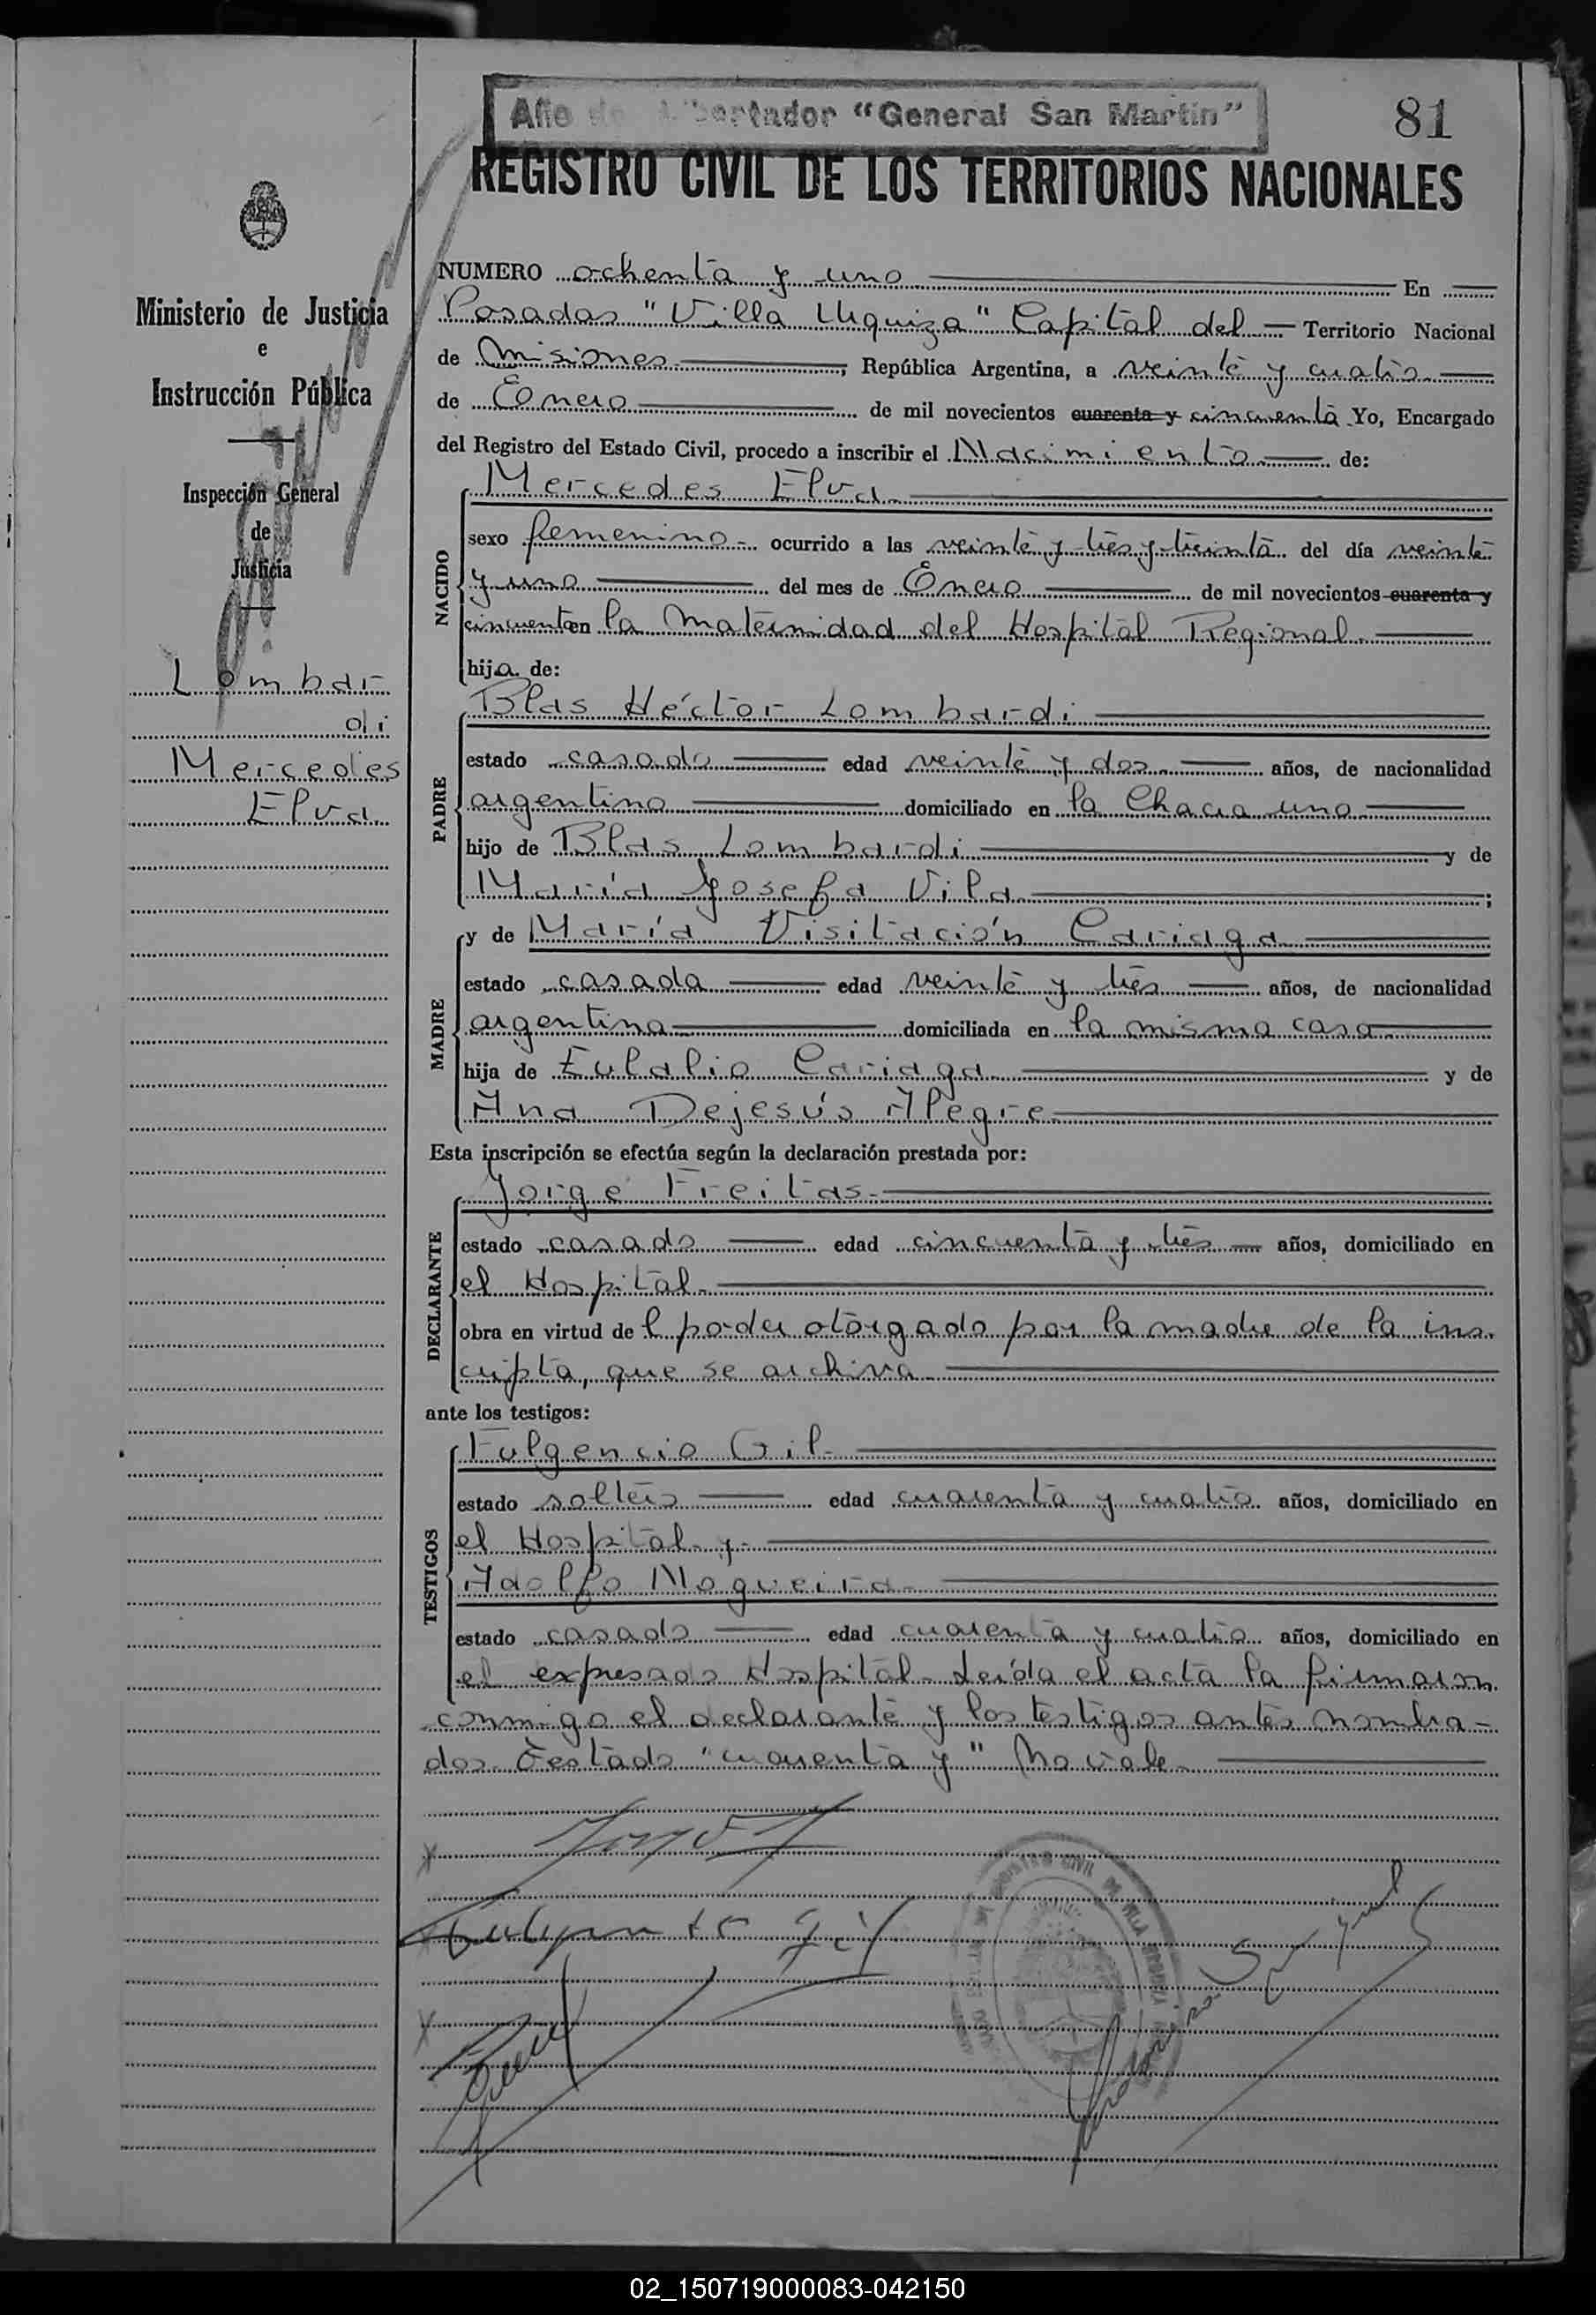 Año del Libertador "General San Martín"
81
REGISTRO CIVIL DE LOS TERRITORIOS NACIONALES
Ministerio de Justicia
e
Instrucción Pública
Inspección General
de
Justicia
Lombar
di
Mercedes
Elva
NUMERO ochenta y uno En
Posadas "Villa Urquiza" Capital del Territorio Nacional
de Misiones, República Argentina, a veinte y cuatro
de Enero de mil novecientos cuarenta y cincuenta Yo, Encargado
del Registro del Estado Civil, procedo a inscribir el Nacimiento de:
NACIDO
Mercedes Elva
sexo femenino ocurrido a las veinte y tres y treinta del día veinte
y uno del mes de Enero de mil novecientos cuarenta y
cincuenta en la Maternidad del Hospital Regional
hija de:
PADRE
Blas Héctor Lombardi
estado casado edad veinte y dos años, de nacionalidad
argentino domiciliado en la Chacra uno
hijo de Blas Lombardi y de
María Josefa Vila;
MADRE
y de María Visitación Cariaga
estado casada edad veinte y tres años, de nacionalidad
argentina domiciliada en la misma casa
hija de Eulalio Cariaga y de
Ana Dejesús Alegre
Esta inscripción se efectúa según la declaración prestada por:
DECLARANTE
Jorge Freitas
estado casado edad cincuenta y tres años, domiciliado en
el Hospital
obra en virtud del poder otorgado por la madre de la ins.
cripta, que se archiva
ante los testigos:
TESTIGOS
Fulgencio Gil
estado soltero edad cuarenta y cuatro años, domiciliado en
el Hospital y
Adolfo Nogueira
estado casado edad cuarenta y cuatro años, domiciliado en
el expresado Hospital - Leída el acta la firmaron
conmigo el declarante y los testigos antes nombra-
dos. Testado "cuarenta y" No vale
Fulgencio Gil
REGISTRO CIVIL DE VILLA URQUIZA
02_150719000083-042150